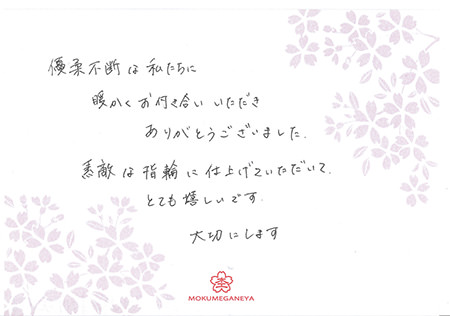 優柔不断は私たちに
暖かくお付き合いいただき
ありがとうございました.
素敵は指輪に仕上げていただいて、
とても嬉しいです.
大切にします
MOKUMEGANEYA